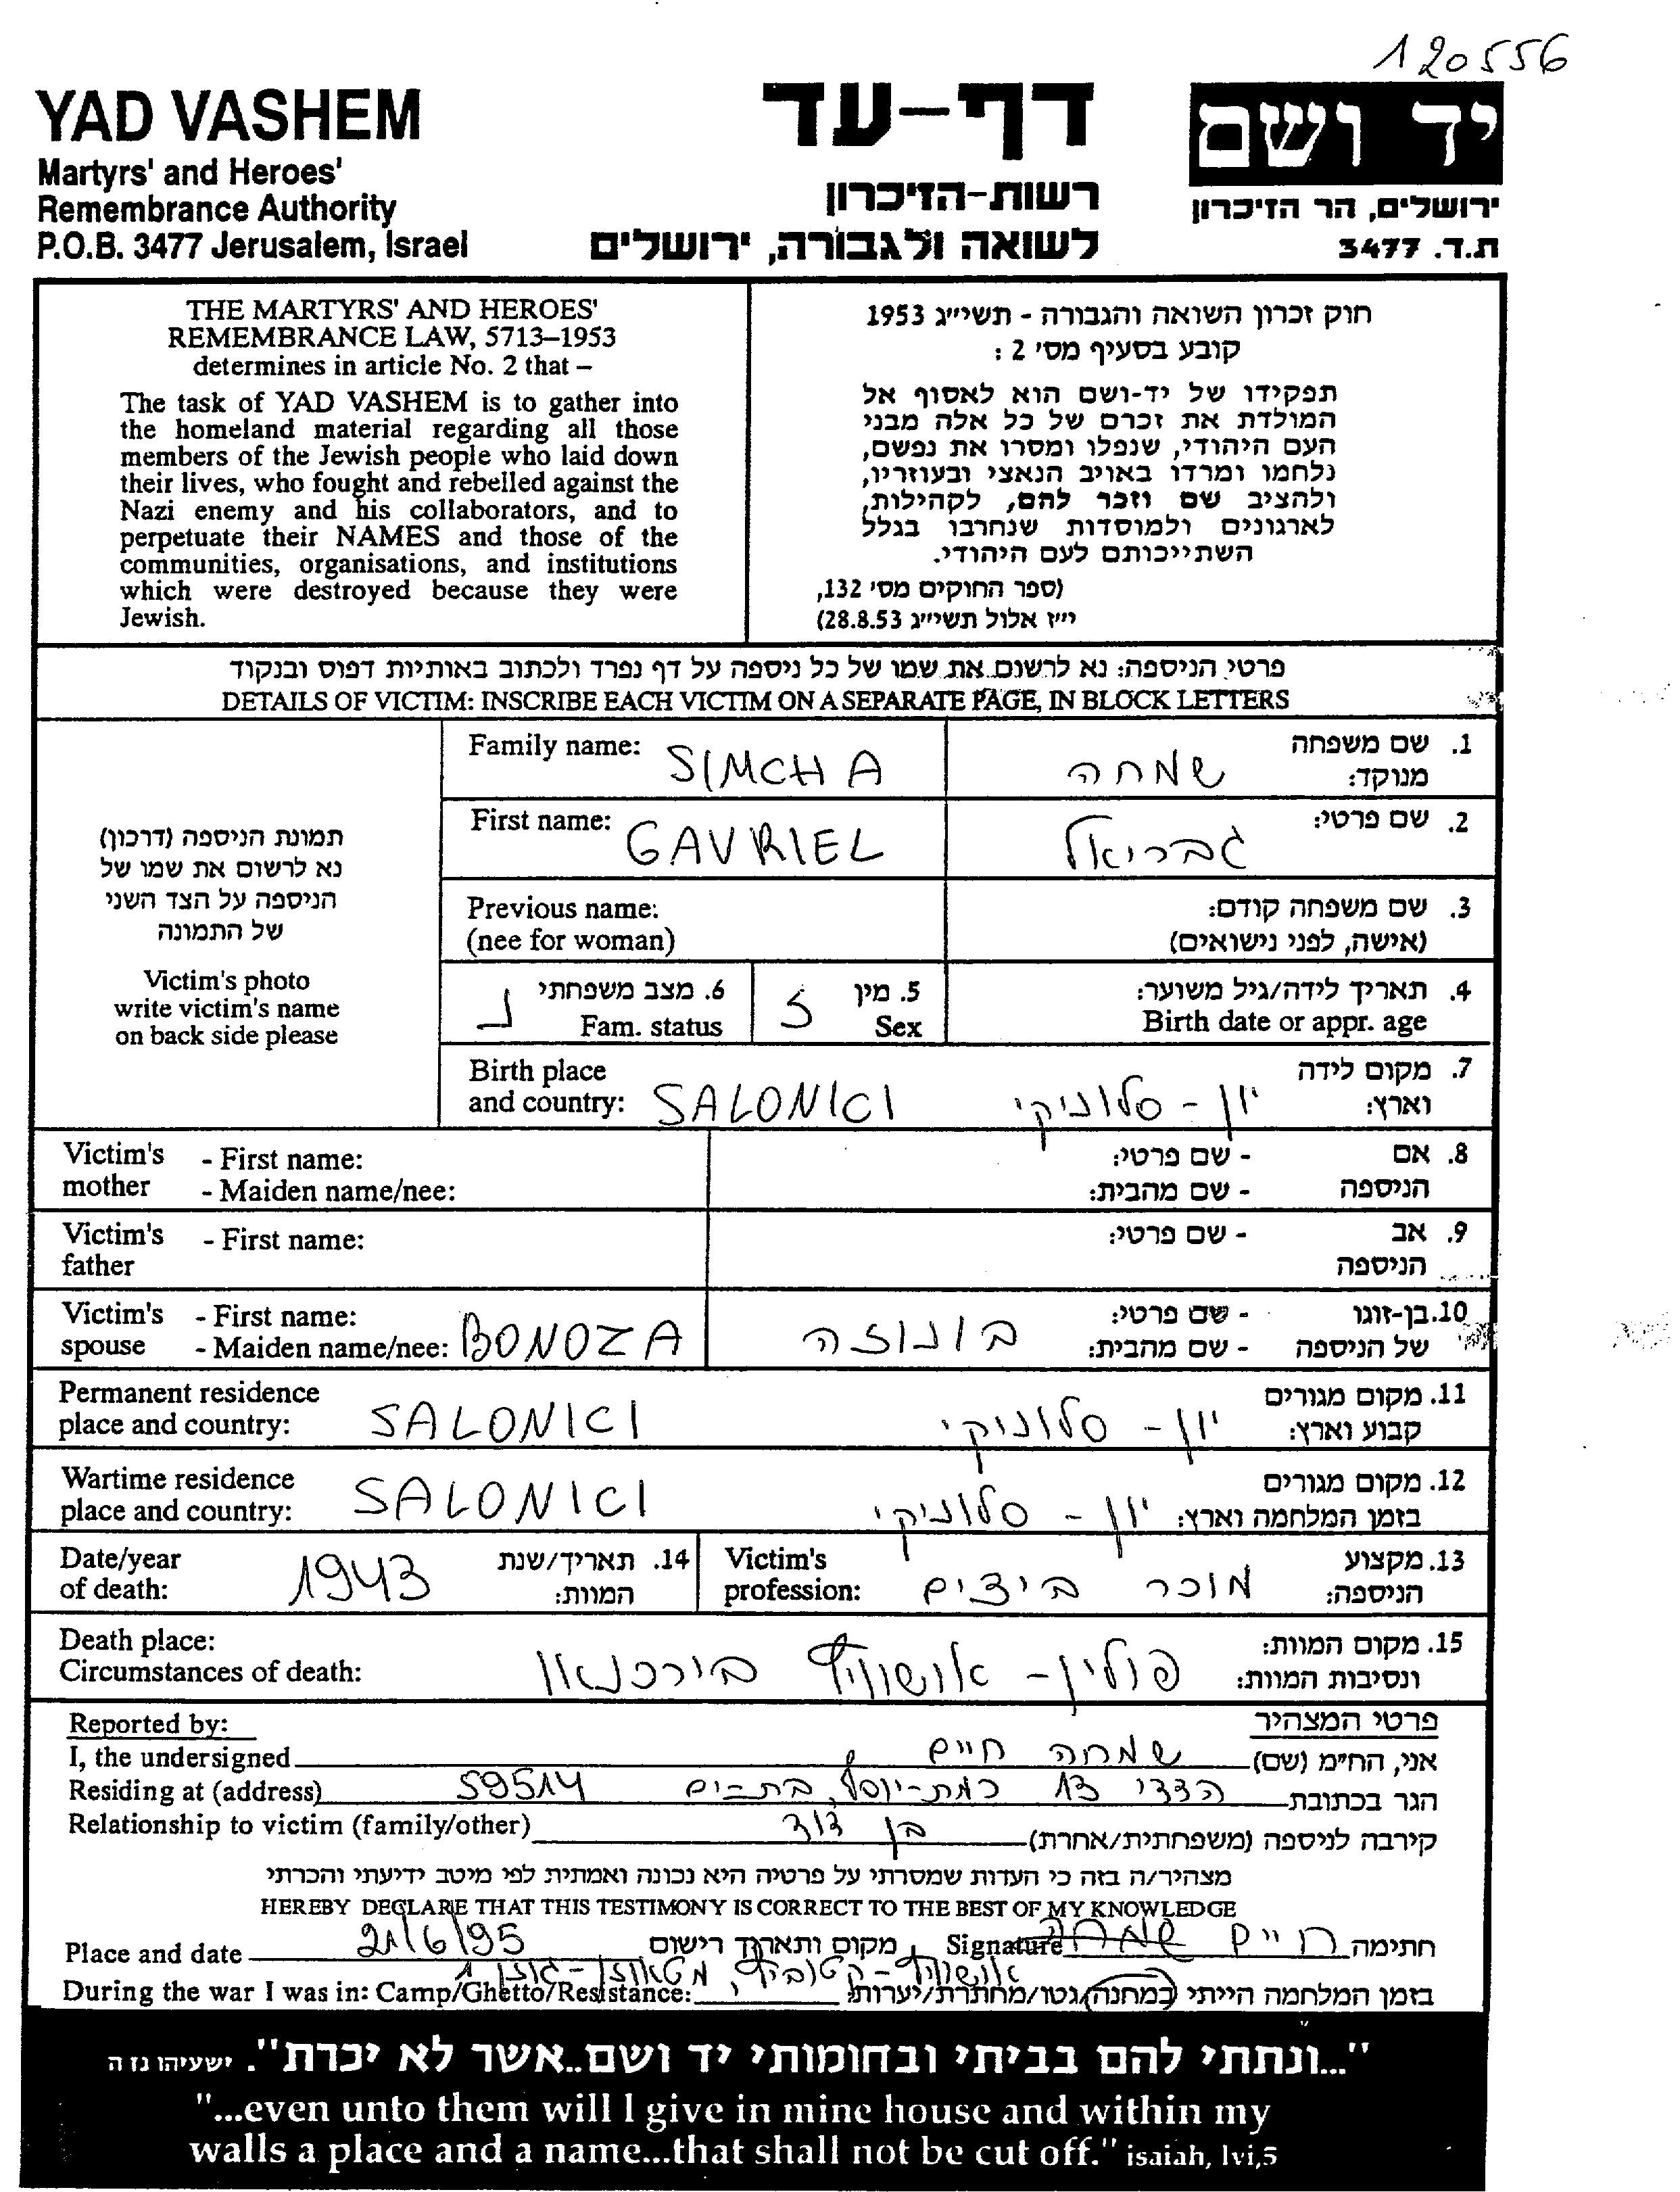 120556
YAD VASHEM
Martyrs' and Heroes'
Remembrance Authority
P.O.B. 3477 Jerusalem, Israel
דף-עד
רשות-הזיכרון
לשואה ולגבורה, ירושלים
יד ושם
ירושלים, הר הזיכרון
ת.ד. 3477
THE MARTYRS' AND HEROES'
REMEMBRANCE LAW, 5713–1953
determines in article No. 2 that –
The task of YAD VASHEM is to gather into
the homeland material regarding all those
members of the Jewish people who laid down
their lives, who fought and rebelled against the
Nazi enemy and his collaborators, and to
perpetuate their NAMES and those of the
communities, organisations, and institutions
which were destroyed because they were
Jewish.
חוק זכרון השואה והגבורה - תשי״ג 1953
קובע בסעיף מס׳ 2 :
תפקידו של יד-ושם הוא לאסוף אל
המולדת את זכרם של כל אלה מבני
העם היהודי, שנפלו ומסרו את נפשם,
נלחמו ומרדו באויב הנאצי ובעוזריו,
ולהציב שם וזכר להם, לקהילות,
לארגונים ולמוסדות שנחרבו בגלל
השתייכותם לעם היהודי.
(ספר החוקים מס׳ 132,
י״ז אלול תשי״ג 28.8.53)
פרטי הניספה: נא לרשום את שמו של כל ניספה על דף נפרד ולכתוב באותיות דפוס ובנקוד
DETAILS OF VICTIM: INSCRIBE EACH VICTIM ON A SEPARATE PAGE, IN BLOCK LETTERS
תמונת הניספה (דרכון)
נא לרשום את שמו של
הניספה על הצד השני
של התמונה
Victim's photo
write victim's name
on back side please
Family name: SIMCHA שמחה 1. שם משפחה
מנוקד:
First name: GAVRIEL גבריאל 2. שם פרטי:
Previous name: 3. שם משפחה קודם:
(nee for woman) (אישה, לפני נישואים)
נ 6. מצב משפחתי ז 5. מין 4. תאריך לידה/גיל משוער:
Fam. status Sex Birth date or appr. age
Birth place 7. מקום לידה
and country: SALONICI יון - סלוניקי וארץ:
Victim's - First name: - שם פרטי: 8. אם
mother - Maiden name/nee: - שם מהבית: הניספה
Victim's - First name: - שם פרטי: 9. אב
father הניספה
Victim's - First name: - שם פרטי: 10. בן-זוגו
spouse - Maiden name/nee: BONOZA בונוזה - שם מהבית: של הניספה
Permanent residence 11. מקום מגורים
place and country: SALONICI יון - סלוניקי קבוע וארץ:
Wartime residence 12. מקום מגורים
place and country: SALONICI יון - סלוניקי בזמן המלחמה וארץ:
Date/year 1943 14. תאריך/שנת Victim's 13. מקצוע
of death: המוות: profession: מוכר ביצים הניספה:
Death place: 15. מקום המוות:
Circumstances of death: פולין - אושוויץ בירכנאו ונסיבות המוות:
Reported by: פרטי המצהיר
I, the undersigned שמחה חיים אני, הח״מ (שם)
Residing at (address) הגר בכתובת 13 רמת-יוסף, בת-ים 59514
Relationship to victim (family/other) בן דוד קירבה לניספה (משפחתית/אחרת)
מצהיר/ה בזה כי העדות שמסרתי על פרטיה היא נכונה ואמתית לפי מיטב ידיעתי והכרתי
HEREBY DECLARE THAT THIS TESTIMONY IS CORRECT TO THE BEST OF MY KNOWLEDGE
Place and date 21/6/95 מקום ותאריך רישום Signature חיים שמחה חתימה
אושוויץ - מטאוזן - גוזן 1
During the war I was in: Camp/Ghetto/Resistance: בזמן המלחמה הייתי במחנה/גטו/מחתרת/יערות:
"...ונתתי להם בביתי ובחומותי יד ושם..אשר לא יכרת". ישעיהו נז ה
"...even unto them will I give in mine house and within my
walls a place and a name...that shall not be cut off." isaiah, lvi,5